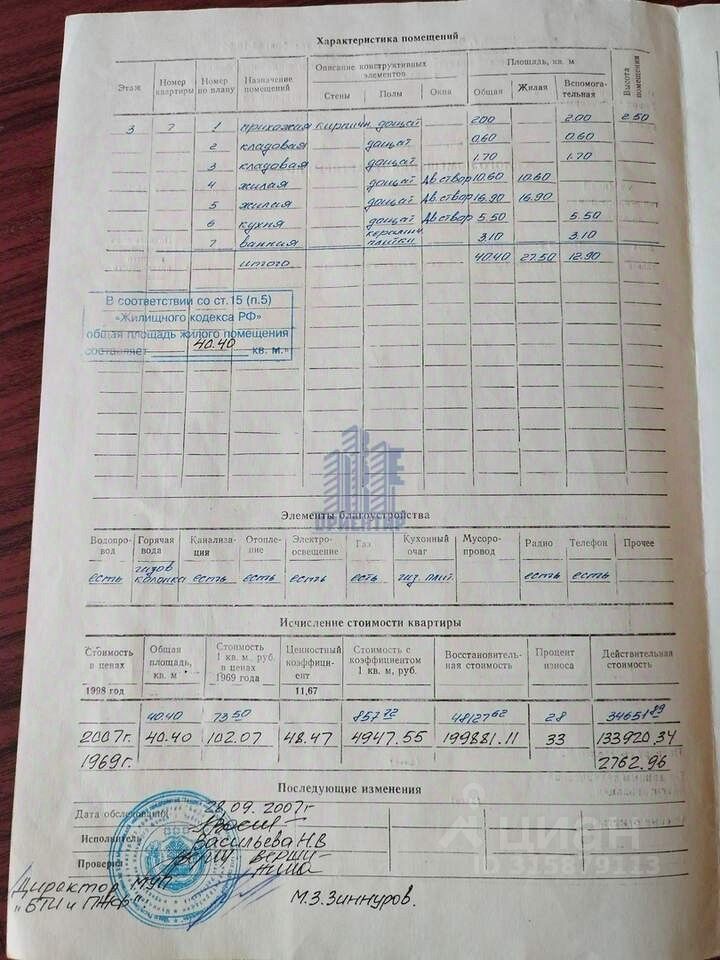 Характеристика помещений
Этаж | Номер квартиры | Номер по плану | Назначение помещений | Описание конструктивных элементов: Стены | Полы | Окна | Площадь, кв. м: Общая | Жилая | Вспомогательная | Высота помещения
3 | 7 | 1 | прихожая | кирпичн | дощат | 2.00 | 2.00 | 2.50
2 | кладовая | дощат | 0.60 | 0.60
3 | кладовая | дощат | 1.70 | 1.70
4 | жилая | дощат | Дв.створ | 10.60 | 10.60
5 | жилая | дощат | Дв.створ | 16.90 | 16.90
6 | кухня | дощат | Дв.створ | 5.50 | 5.50
7 | ванная | керамич плитки | 3.10 | 3.10
итого | 40.40 | 27.50 | 12.90
В соответствии со ст.15 (п.5)
«Жилищного кодекса РФ»
общая площадь жилого помещения
составляет 40.40 кв. м.»
Элементы благоустройства
Водопровод | Горячая вода | Канализация | Отопление | Электроосвещение | Газ | Кухонный очаг | Мусоропровод | Радио | Телефон | Прочее
есть | газов колонка | есть | есть | есть | есть | газ. плит. | есть | есть
Исчисление стоимости квартиры
Стоимость в ценах 1998 год | Общая площадь, кв. м | Стоимость 1 кв. м, руб. в ценах 1969 года | Ценностный коэффициент 11,67 | Стоимость с коэффициентом 1 кв. м, руб. | Восстановительная стоимость | Процент износа | Действительная стоимость
40.40 | 73.50 | 857 72 | 48127 62 | 28 | 34651 89
2007г. | 40.40 | 102.07 | 48.47 | 4947.55 | 199881.11 | 33 | 133920.34
1969г. | 2762.96
Последующие изменения
Дата обследования 28.09.2007г
Исполнитель Васильева Н.В
Проверил
Директор МУП
"БТИ и ПЖФ"
М.З.Зиннуров.
ОРИЕНТИР
циан